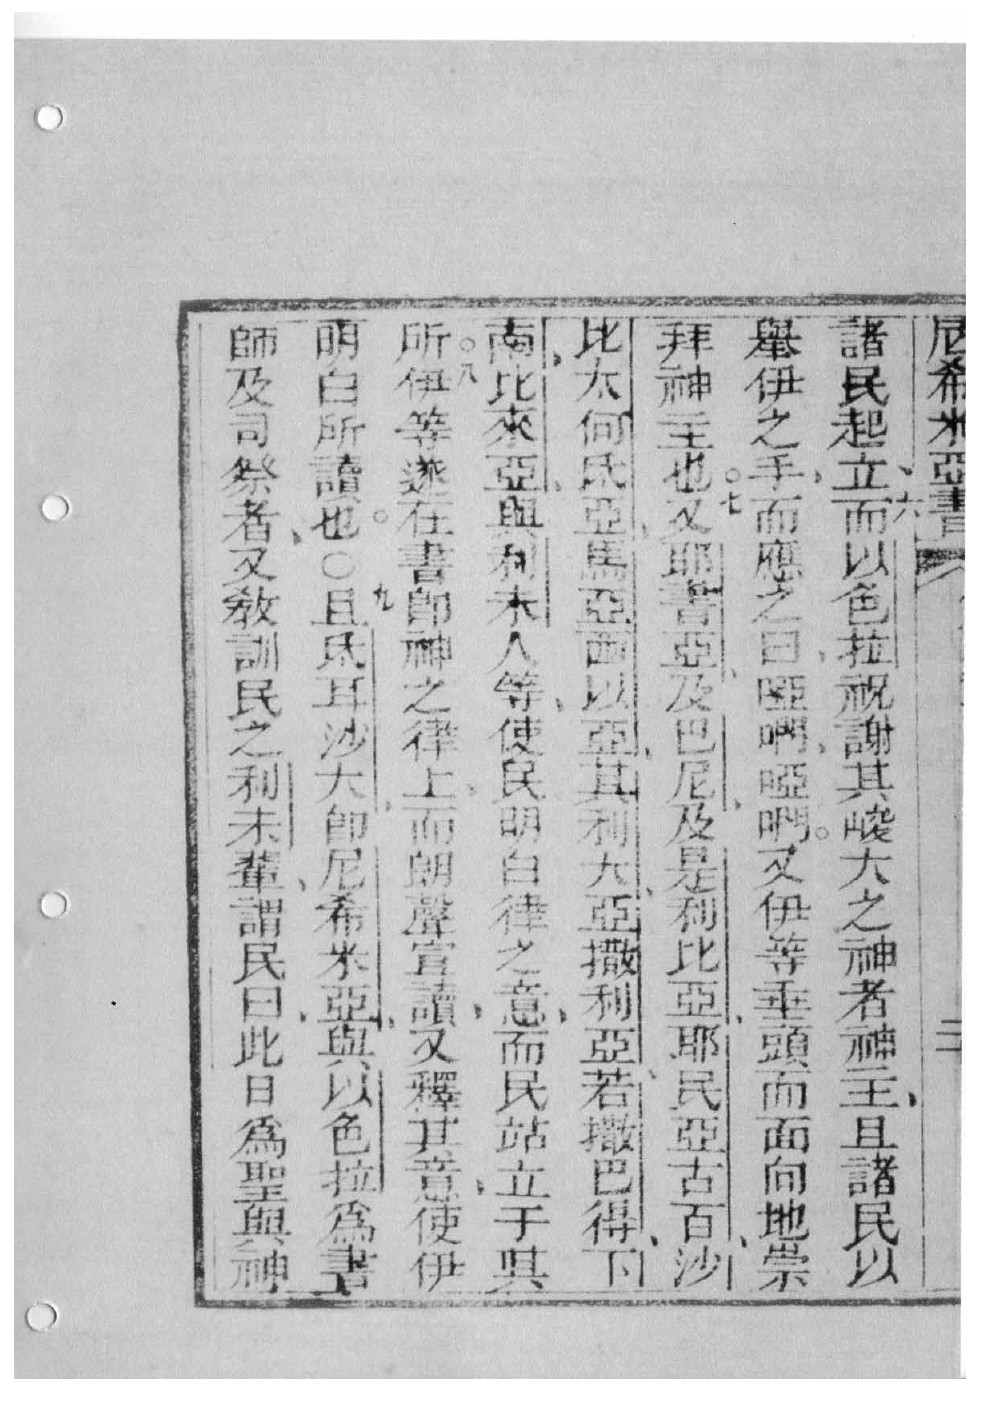 尼希米亞書 二
諸民起立、六而以色拉祝謝其峻大之神者神主、且諸民以
舉伊之手、而應之曰、啞呣、啞呣。又伊等垂頭而面向地崇
拜神主也。七又耶書亞、及巴尼、及是利比亞、耶民亞古百、沙
比太何氏亞、馬亞西以亞、其利大、亞撒利亞、若撒巴得、下
南、比來亞、與利未人等、使民明白律之意、而民站立于㫷
所。八伊等遂在書卽神之律上、而朗聲宣讀、又釋其意、使伊
明白所讀也。○九且氐耳沙大、卽尼希米亞、與以色拉為書
師及司祭者、又敎訓民之利未輩、謂民曰、此日為聖與神